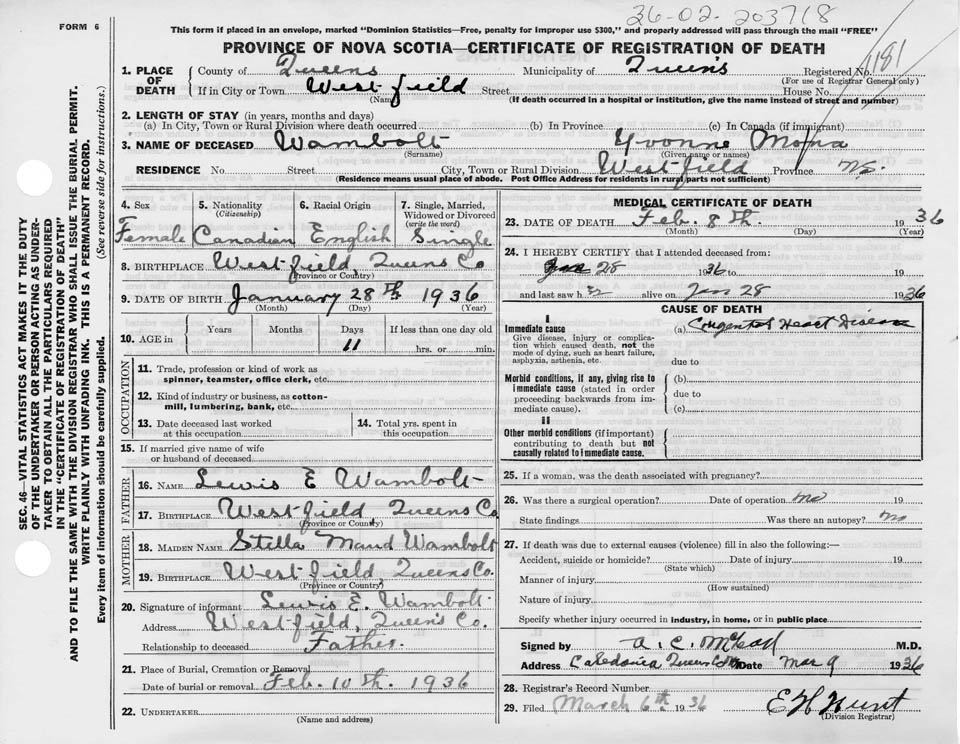 FORM 6
36-02-203718
This form if placed in an envelope, marked "Dominion Statistics—Free, penalty for improper use $300," and properly addressed will pass through the mail "FREE"
PROVINCE OF NOVA SCOTIA—CERTIFICATE OF REGISTRATION OF DEATH
1. PLACE OF DEATH County of Queens Municipality of Queens Registered No. 1181
(For use of Registrar General only)
If in City or Town Westfield Street House No.
(Name) (If death occurred in a hospital or institution, give the name instead of street and number)
2. LENGTH OF STAY (in years, months and days)
(a) In City, Town or Rural Division where death occurred (b) In Province (c) In Canada (if immigrant)
3. NAME OF DECEASED Wambolt Yvonne
(Surname) (Given name or names)
RESIDENCE No. Street City, Town or Rural Division Westfield Province N.S.
(Residence means usual place of abode. Post Office Address for residents in rural parts not sufficient)
4. Sex 5. Nationality (Citizenship) 6. Racial Origin 7. Single, Married, Widowed or Divorced (write the word)
Female Canadian English Single
8. BIRTHPLACE Westfield, Queens Co
(Province or Country)
9. DATE OF BIRTH January 28th 1936
(Month) (Day) (Year)
10. AGE in Years Months Days If less than one day old
11 hrs. or min.
OCCUPATION
11. Trade, profession or kind of work as spinner, teamster, office clerk, etc.
12. Kind of industry or business, as cotton-mill, lumbering, bank, etc.
13. Date deceased last worked at this occupation 14. Total yrs. spent in this occupation
15. If married give name of wife or husband of deceased
FATHER
16. NAME Lewis E Wambolt
17. BIRTHPLACE Westfield, Queens Co
(Province or Country)
MOTHER
18. MAIDEN NAME Stella Maud Wambolt
19. BIRTHPLACE Westfield, Queens Co.
(Province or Country)
20. Signature of informant Lewis E. Wambolt
Address Westfield, Queen's Co.
Relationship to deceased Father.
21. Place of Burial, Cremation or Removal
Date of burial or removal Feb. 10th. 1936
22. UNDERTAKER
(Name and address)
MEDICAL CERTIFICATE OF DEATH
23. DATE OF DEATH Feb. 8th. 1936
(Month) (Day) (Year)
24. I HEREBY CERTIFY that I attended deceased from:
Jan 28 1936 to 19
and last saw h alive on Jan 28 1936
CAUSE OF DEATH
I
Immediate cause (a) Congenital Heart Disease
Give disease, injury or complication which caused death, not the mode of dying, such as heart failure, asphyxia, asthenia, etc. due to
Morbid conditions, if any, giving rise to immediate cause (stated in order proceeding backwards from immediate cause). (b) due to (c)
II
Other morbid conditions (if important) contributing to death but not causally related to immediate cause.
25. If a woman, was the death associated with pregnancy?
26. Was there a surgical operation? Date of operation no 19
State findings Was there an autopsy? no
27. If death was due to external causes (violence) fill in also the following:—
Accident, suicide or homicide? Date of injury 19
(State which)
Manner of injury
(How sustained)
Nature of injury
Specify whether injury occurred in industry, in home, or in public place
Signed by M.D.
Address Caledonia Queens Co Date Mar 9 1936
28. Registrar's Record Number
29. Filed March 6th. 1936 E H Hunt
(Division Registrar)
SEC. 46—VITAL STATISTICS ACT MAKES IT THE DUTY
OF THE UNDERTAKER OR PERSON ACTING AS UNDER-
TAKER TO OBTAIN ALL THE PARTICULARS REQUIRED
IN THE "CERTIFICATE OF REGISTRATION OF DEATH"
AND TO FILE THE SAME WITH THE DIVISION REGISTRAR WHO SHALL ISSUE THE BURIAL PERMIT.
WRITE PLAINLY WITH UNFADING INK. THIS IS A PERMANENT RECORD.
Every item of information should be carefully supplied. (See reverse side for instructions.)